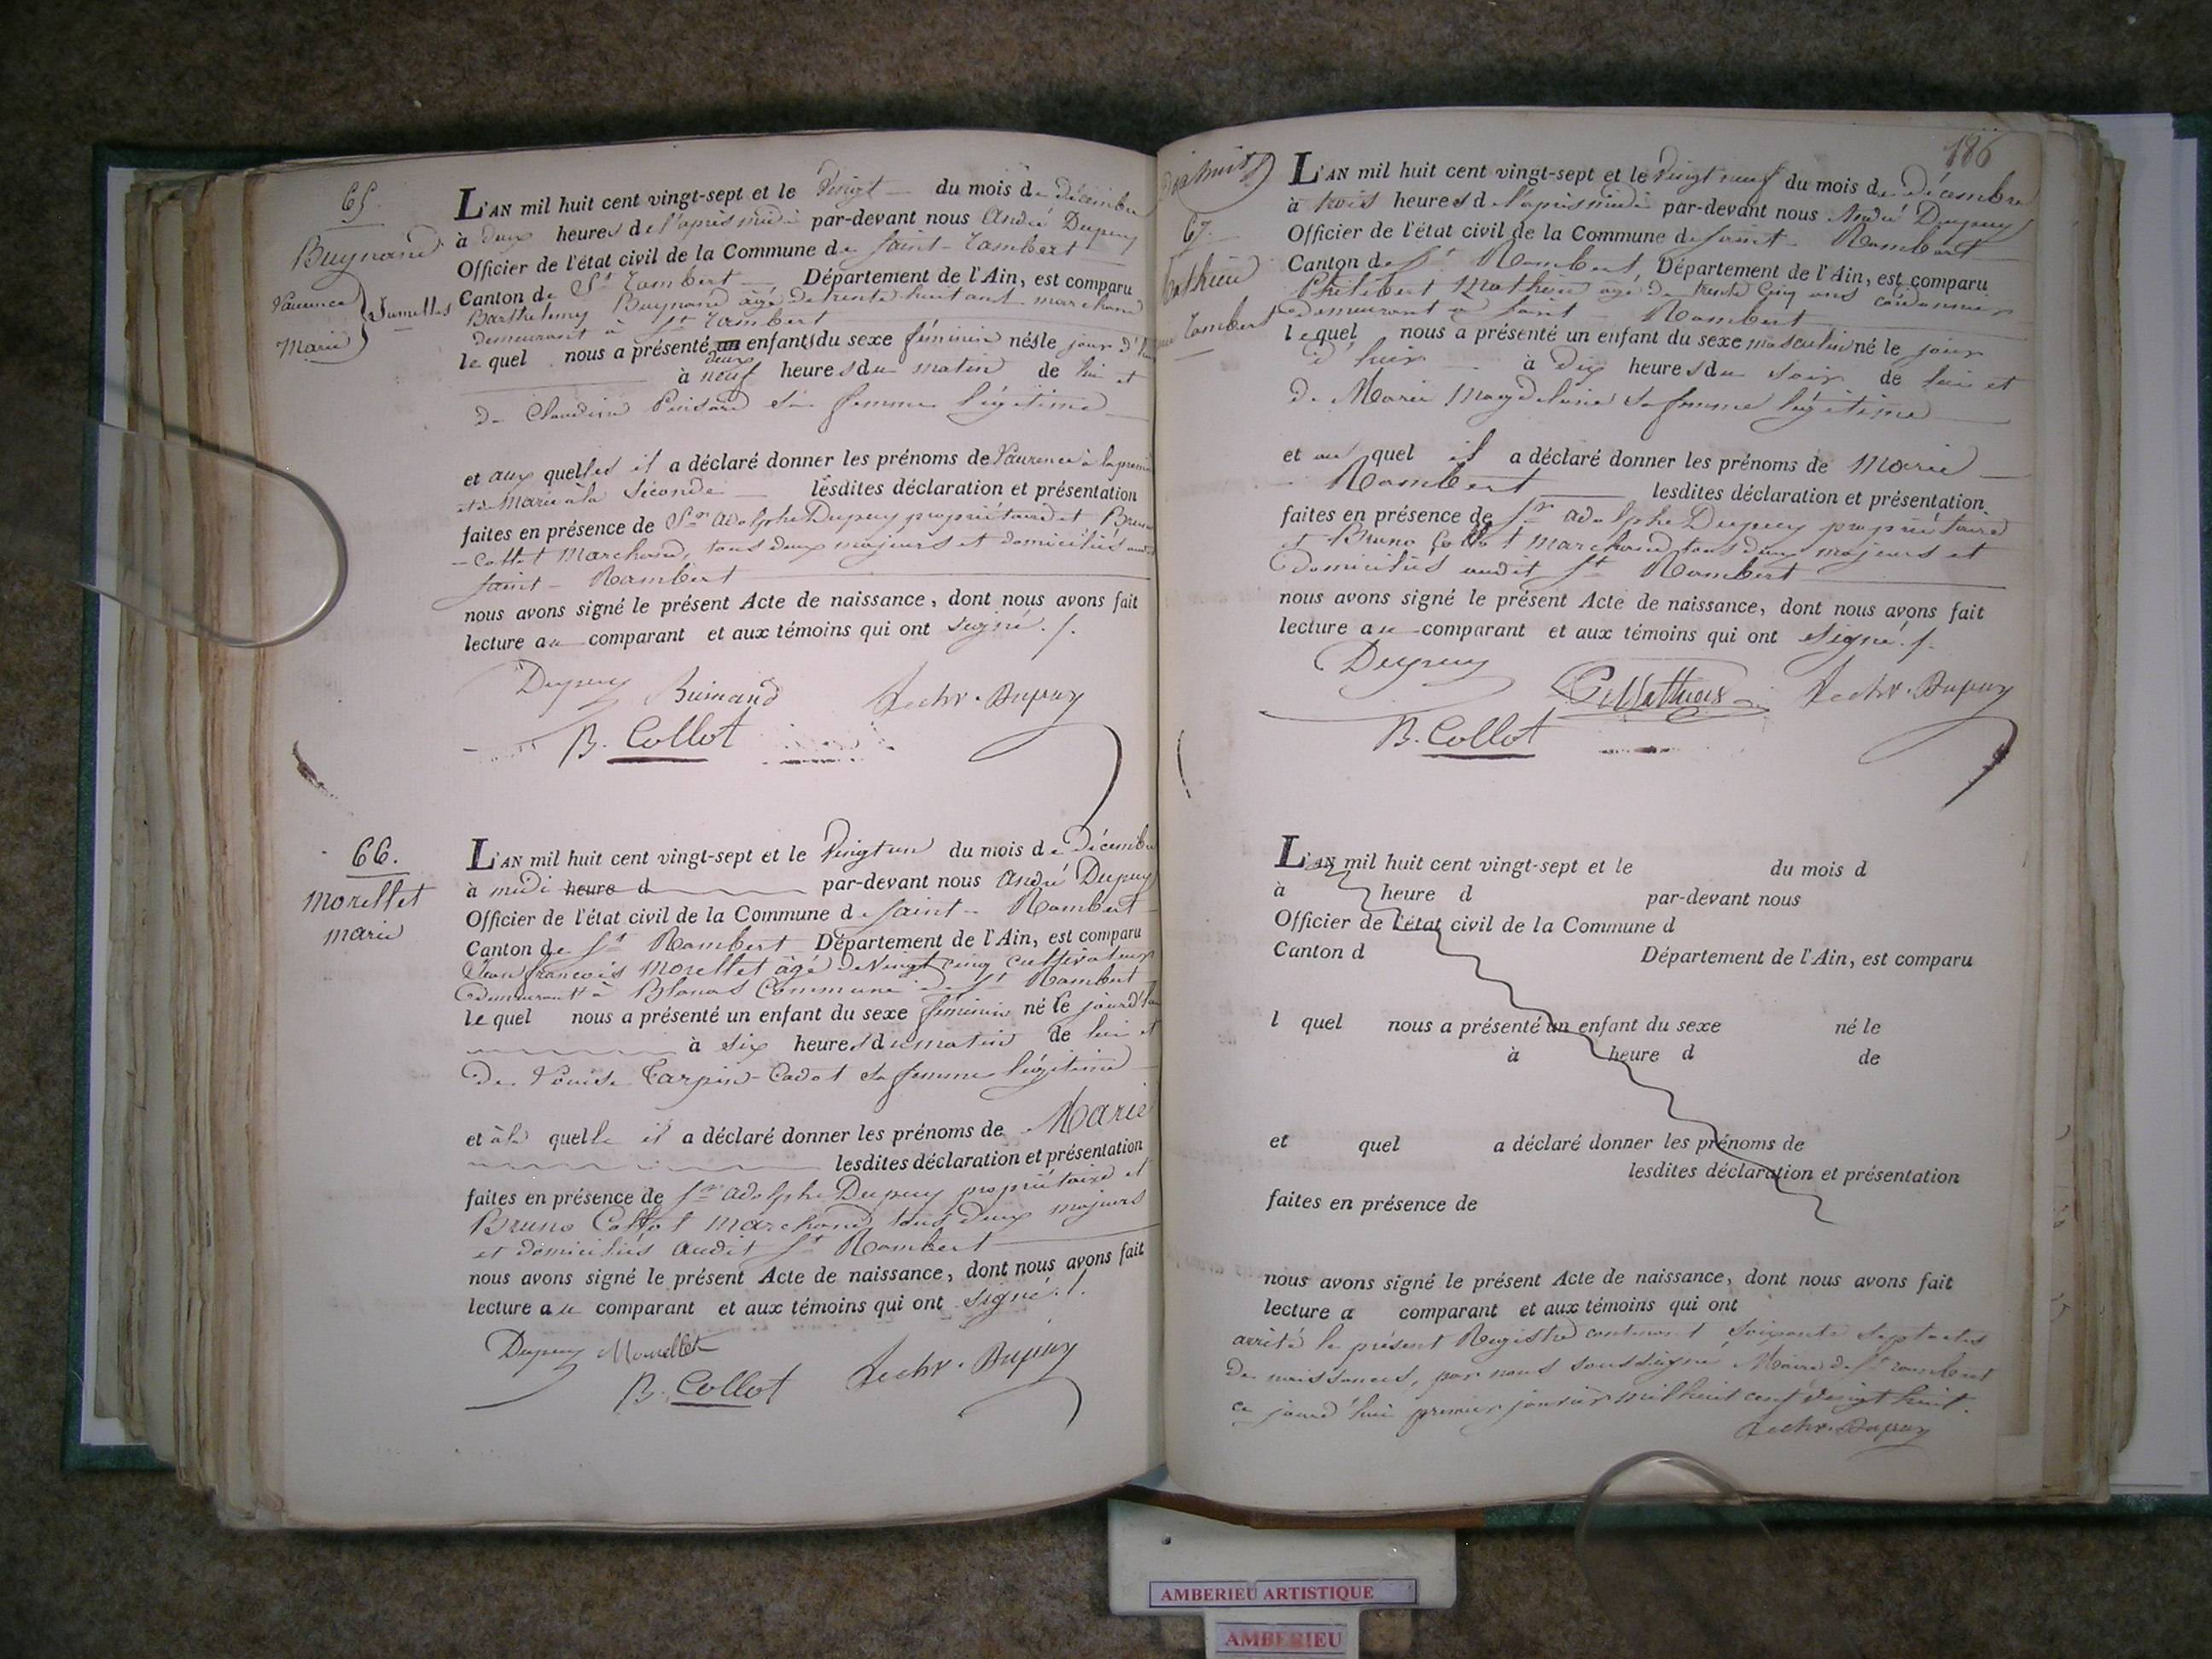 65.
Buynand
Laurence
Marie
Jumelles
L'AN mil huit cent vingt-sept et le Vingt du mois de décembre
à deux heures de l'après midi par-devant nous André Dupuy
Officier de l'état civil de la Commune de Saint-Rambert
Canton de St Rambert Département de l'Ain, est comparu
Barthelemy Buynand âgé de trente huit ans marchand
demeurant à St Rambert
le quel nous a présenté un deux enfants du sexe féminin nés le jour d'hui
à neuf heures du matin de lui et
de Claudine sa femme légitime
et aux quelles il a déclaré donner les prénoms de Laurence à la première
et de Marie à la Seconde lesdites déclaration et présentation
faites en présence de Sr adolphe Dupuy propriétaire et Bruno
Collot Marchand, tous deux majeurs et domiciliés audit
Saint-Rambert
nous avons signé le présent Acte de naissance, dont nous avons fait
lecture au comparant et aux témoins qui ont signé ./.
Dupuy Buinand Dupuy
B. Collot
66.
Morellet
marie
L'AN mil huit cent vingt-sept et le Vingt un du mois de décembre
à midi heure d par-devant nous André Dupuy
Officier de l'état civil de la Commune de Saint-Rambert
Canton de St Rambert Département de l'Ain, est comparu
Jean françois Morellet âgé de Vingt cinq cultivateur
demeurant à Blanas Commune de St Rambert
le quel nous a présenté un enfant du sexe féminin né le jourd'hui
à six heures du matin de lui et
de Louise Carpin-Cadet sa femme légitime
et à la quelle il a déclaré donner les prénoms de Marie
lesdites déclaration et présentation
faites en présence de Sr adolphe Dupuy propriétaire et
Bruno Collot marchand tous deux majeurs
et domiciliés audit St Rambert
nous avons signé le présent Acte de naissance, dont nous avons fait
lecture au comparant et aux témoins qui ont signé ./.
Dupuy Morellet Dupuy
B. Collot
186
67.
Mathieu
Rambert
L'AN mil huit cent vingt-sept et le Vingt neuf du mois de décembre
à trois heures de l'après midi par-devant nous André Dupuy
Officier de l'état civil de la Commune de Saint-Rambert
Canton de St Rambert, Département de l'Ain, est comparu
Philibert Mathieu âgé de trente cinq ans cordonnier
demeurant à Saint-Rambert
le quel nous a présenté un enfant du sexe masculin né le jour
d'hier à dix heures du soir de lui et
de Marie Magdelaine sa femme légitime
et au quel il a déclaré donner les prénoms de Marie
Rambert lesdites déclaration et présentation
faites en présence de Sr adolphe Dupuy propriétaire
et Bruno Collot marchand tous deux majeurs et
domiciliés audit St Rambert
nous avons signé le présent Acte de naissance, dont nous avons fait
lecture au comparant et aux témoins qui ont signé ./.
Dupuy Mathieu Dupuy
B. Collot
L'AN mil huit cent vingt-sept et le du mois d
à heure d par-devant nous
Officier de l'état civil de la Commune d
Canton d Département de l'Ain, est comparu
l quel nous a présenté un enfant du sexe né le
à heure d de
et quel a déclaré donner les prénoms de
lesdites déclaration et présentation
faites en présence de
nous avons signé le présent Acte de naissance, dont nous avons fait
lecture a comparant et aux témoins qui ont
arrêté le présent Registre contenant soixante sept actes
de naissances, par nous soussigné Maire de St rambert
ce jourd'hui premier janvier mil huit cent vingt huit.
Dupuy
AMBERIEU ARTISTIQUE
AMBERIEU